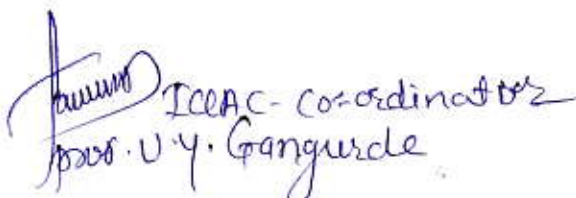 ICQAC - Co-ordinator
prof. U.Y. Gangurde